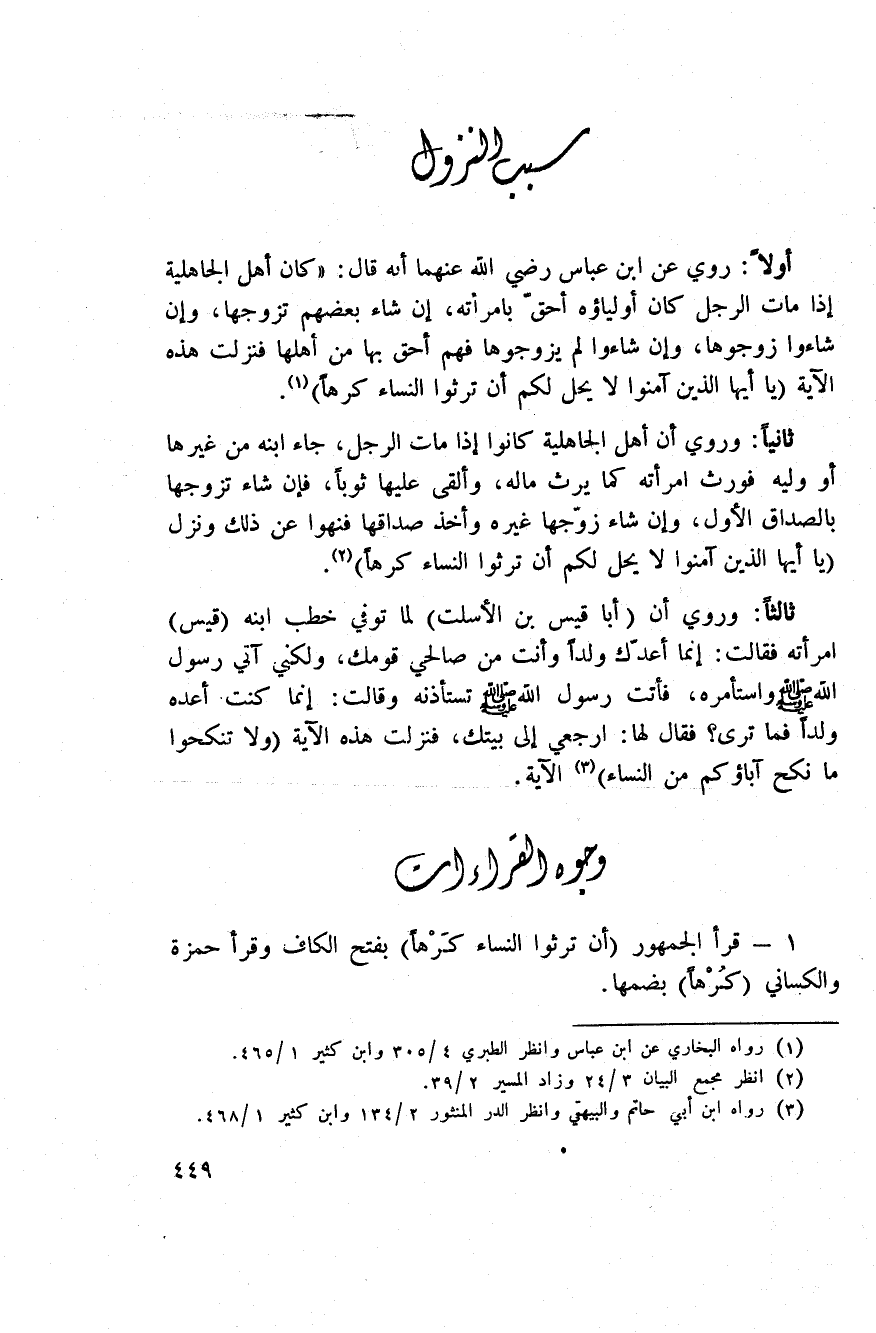 سبب النزول
أولاً: روي عن ابن عباس رضي الله عنهما أنه قال: «كان أهل الجاهلية
إذا مات الرجل كان أولياؤه أحقّ بامرأته، إن شاء بعضهم تزوجها، وإن
شاءوا زوجوها، وإن شاءوا لم يزوجوها فهم أحق بها من أهلها فنزلت هذه
الآية (يا أيها الذين آمنوا لا يحل لكم أن ترثوا النساء كرهاً)(١).
ثانياً: وروي أن أهل الجاهلية كانوا إذا مات الرجل، جاء ابنه من غيرها
أو وليه فورث امرأته كما يرث ماله، وألقى عليها ثوباً، فإن شاء تزوجها
بالصداق الأول، وإن شاء زوّجها غيره وأخذ صداقها فنهوا عن ذلك ونزل
(يا أيها الذين آمنوا لا يحل لكم أن ترثوا النساء كرهاً)(٢).
ثالثاً: وروي أن (أبا قيس بن الأسلت) لما توفي خطب ابنه (قيس)
امرأته فقالت: إنما أعدّك ولداً وأنت من صالحي قومك، ولكني آتي رسول
الله ﷺ واستأمره، فأتت رسول الله ﷺ تستأذنه وقالت: إنما كنت أعده
ولداً فما ترى؟ فقال لها: ارجعي إلى بيتك، فنزلت هذه الآية (ولا تنكحوا
ما نكح آباؤكم من النساء)(٣) الآية.
وجوه القراءات
١ – قرأ الجمهور (أن ترثوا النساء كَرْهاً) بفتح الكاف وقرأ حمزة
والكسائي (كُرْهاً) بضمها.
(١) رواه البخاري عن ابن عباس وانظر الطبري ٣٠٥/٤ وابن كثير ٤٦٥/١.
(٢) انظر مجمع البيان ٢٤/٣ وزاد المسير ٣٩/٢.
(٣) رواه ابن أبي حاتم والبيهقي وانظر الدر المنثور ١٣٤/٢ وابن كثير ٤٦٨/١.
٤٤٩